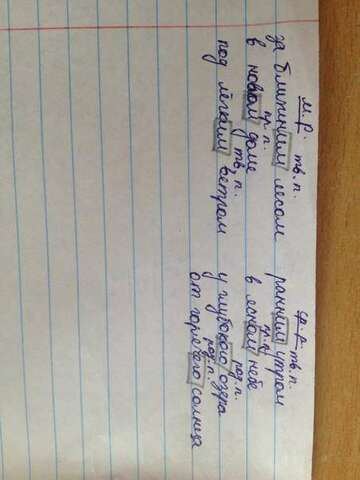 м.р.
тв. п.
за ближним лесом
пр. п.
в новом доме
тв. п.
под лёгким ветром
ср. р.
тв. п.
ранним утром
пр. п.
в ясном небе
род. п.
у глубокого озера
род. п.
от горячего солнца